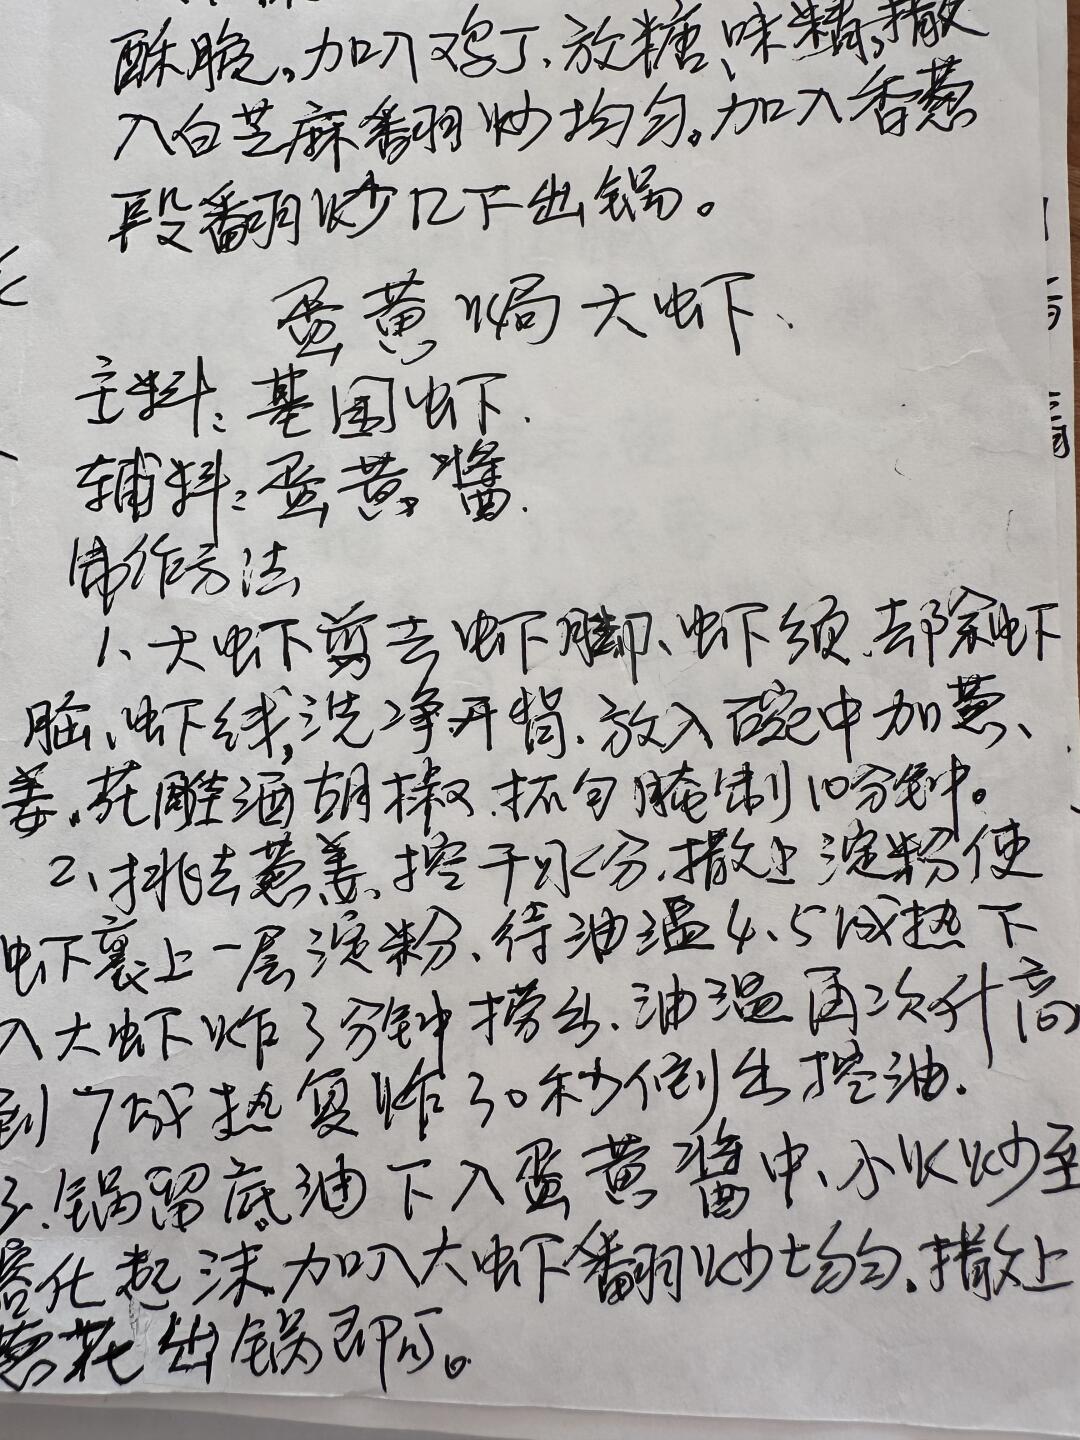 酥脆。加入鸡丁、放糖、味精,撒
入白芝麻翻炒均匀。加入香葱
段翻炒几下出锅。
蛋黄焗大虾、
主料:基围虾.
辅料:蛋黄酱.
制作方法
1、大虾剪去虾脚、虾须.去除虾
脑、虾线,洗净开背.放入碗中加葱、
姜.花雕酒胡椒.抓匀腌制10分钟。
2、挑去葱姜、控干水分.撒上淀粉使
虾裹上一层淀粉、待油温4、5成热下
入大虾炸3分钟捞出、油温再次升高
到7成热复炸30秒倒出控油.
3.锅留底油下入蛋黄酱中、小火炒至
溶化起沫.加入大虾翻炒均匀.撒上
葱花出锅即可。